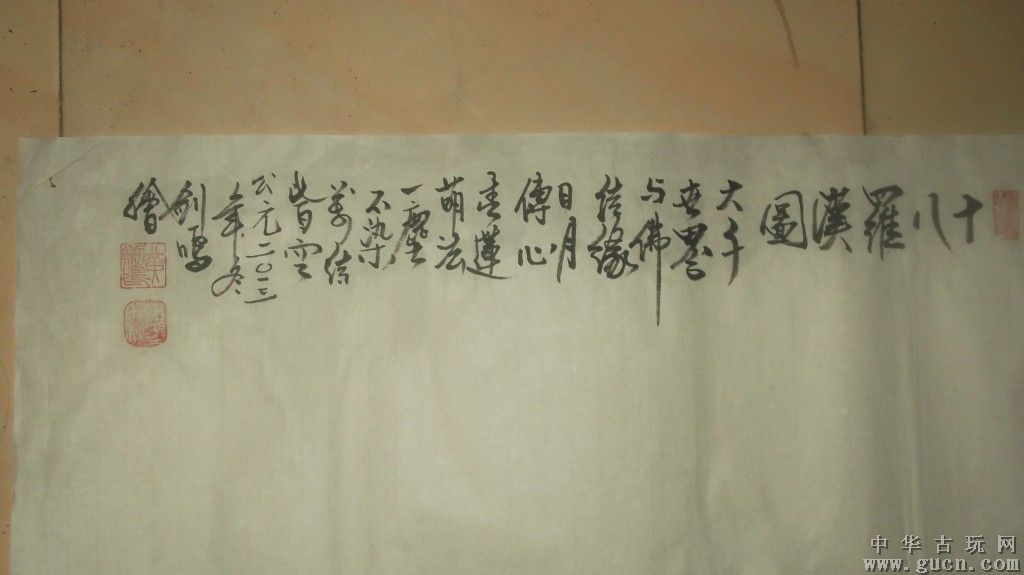 十八羅漢圖
大千
世界
与佛
结緣
日月
傳心
蓮
萌
一塵
不染
萬緣
皆空
公元二〇
年冬
劍鳴
繪
中华古玩网
www.gucn.com